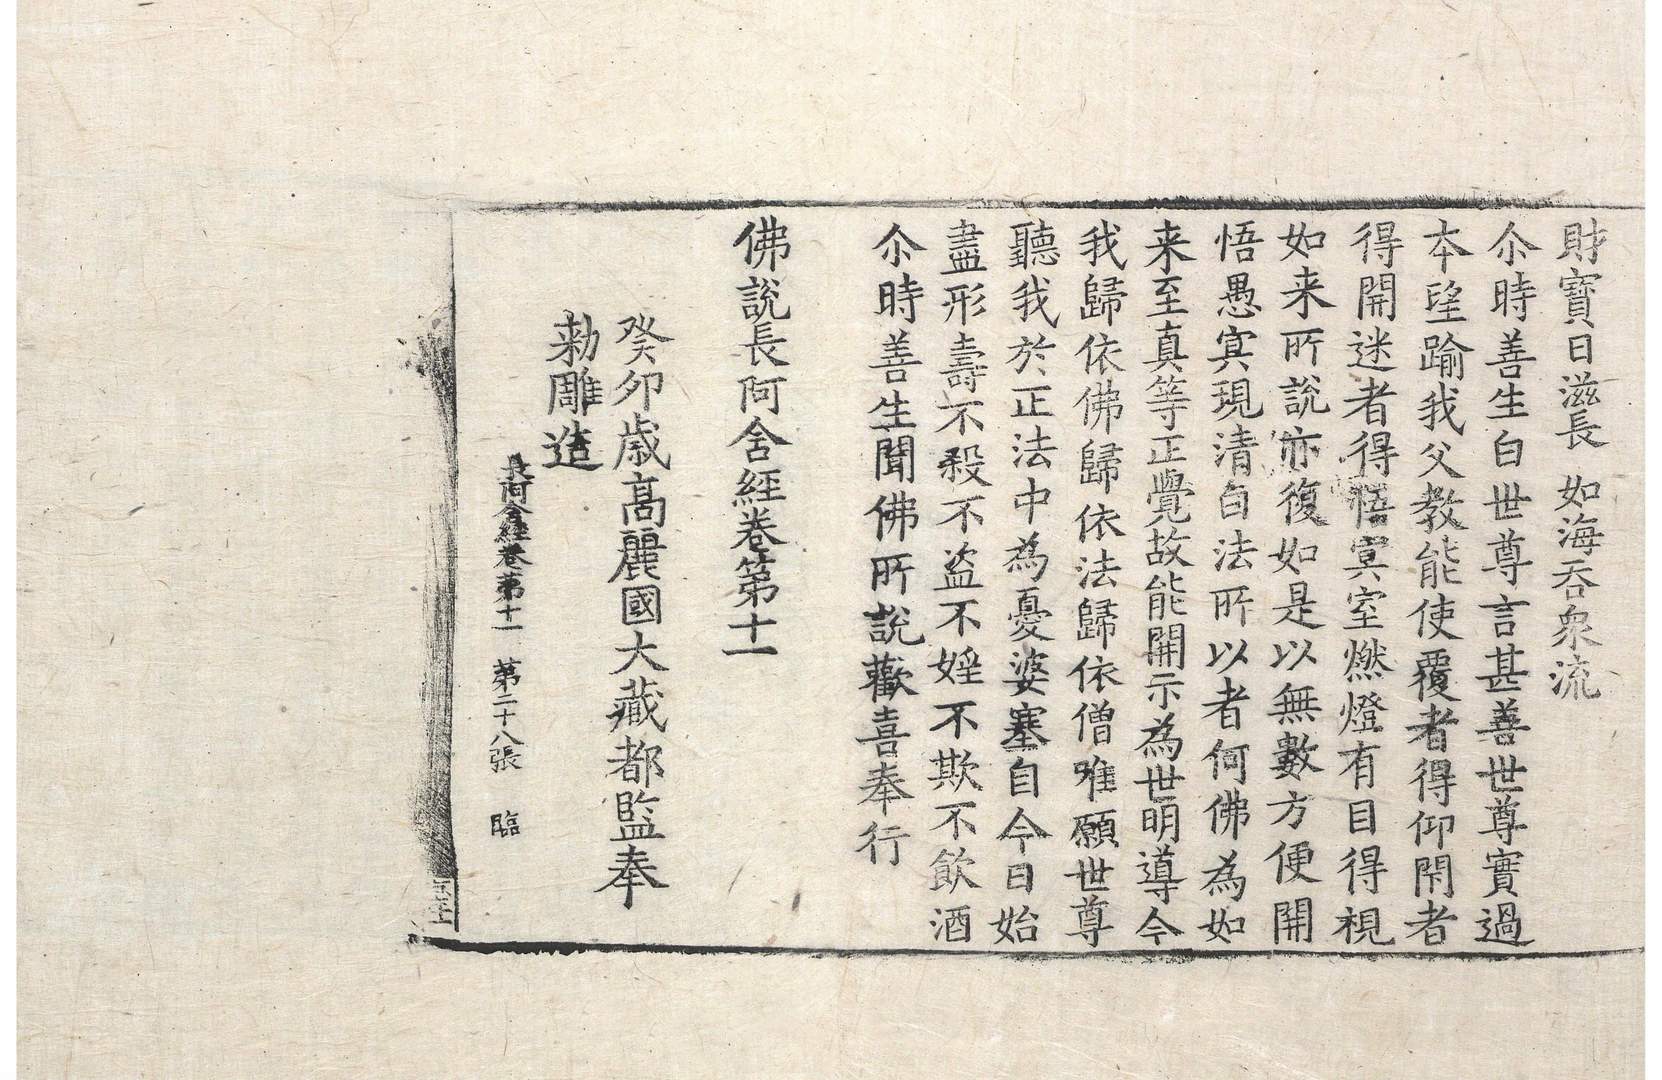 財寶日滋長 如海吞衆流
尒時善生白世尊言甚善世尊實過
本望踰我父教能使覆者得仰閇者
得開迷者得悟冥室燃燈有目得視
如来所說亦復如是以無數方便開
悟愚冥現清白法所以者何佛為如
来至真等正覺故能開示為世明導今
我歸依佛歸依法歸依僧唯願世尊
聽我於正法中為憂婆塞自今日始
盡形壽不殺不盜不婬不欺不飲酒
尒時善生聞佛所說歡喜奉行
佛說長阿含經卷第十一
癸卯歳高麗國大藏都監奉
勅雕造
長阿含經卷第十一 第二十八張 臨